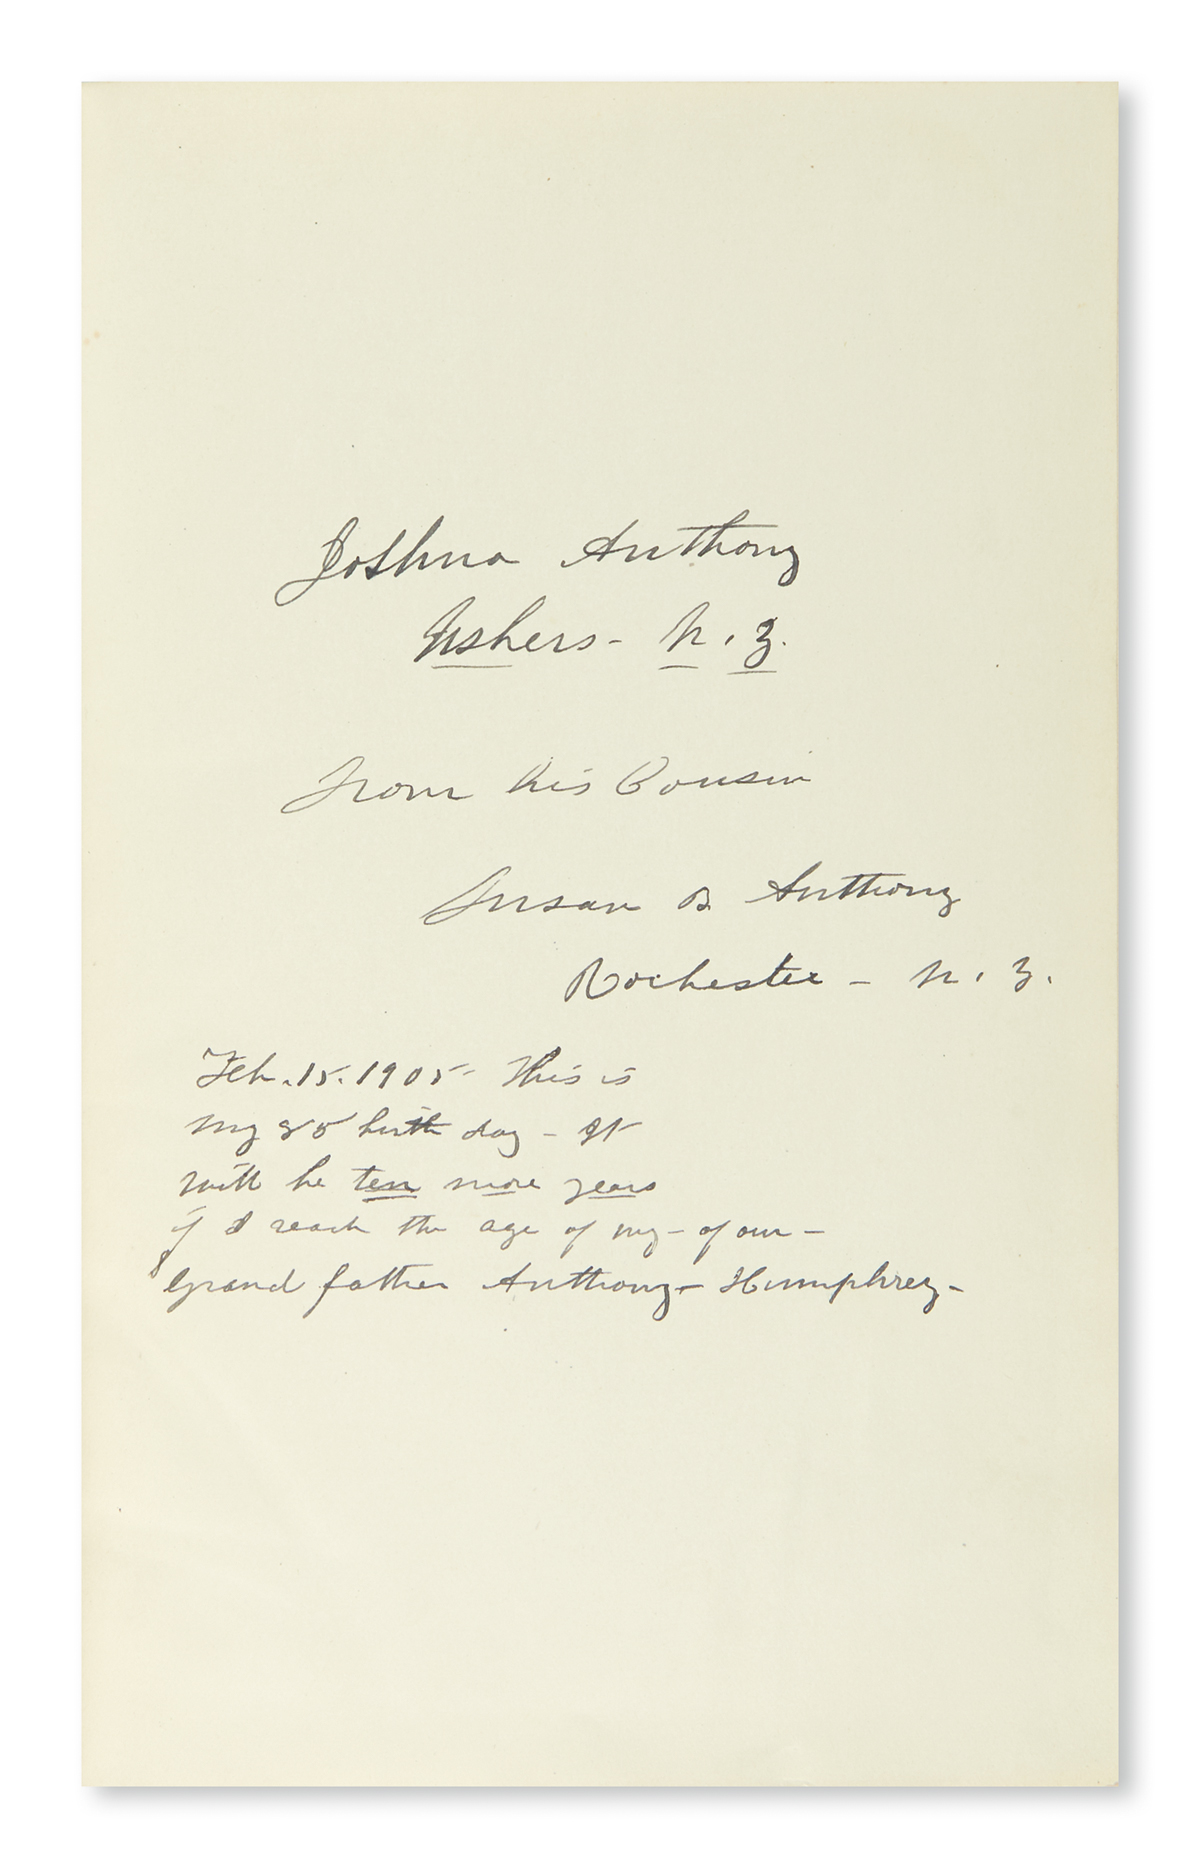 Joshua Anthony
Ushers - N. Y.
From his Cousin
Susan B Anthony
Rochester - N. Y.
Feb. 15. 1905 - This is
my 85 birth day - It
will be ten more years
if I reach the age of my - of our -
Grand father Anthony - Humphrey -